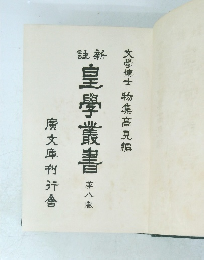 文學博士 物集高見編
新註
皇學叢書
第八卷
廣文庫刊行會